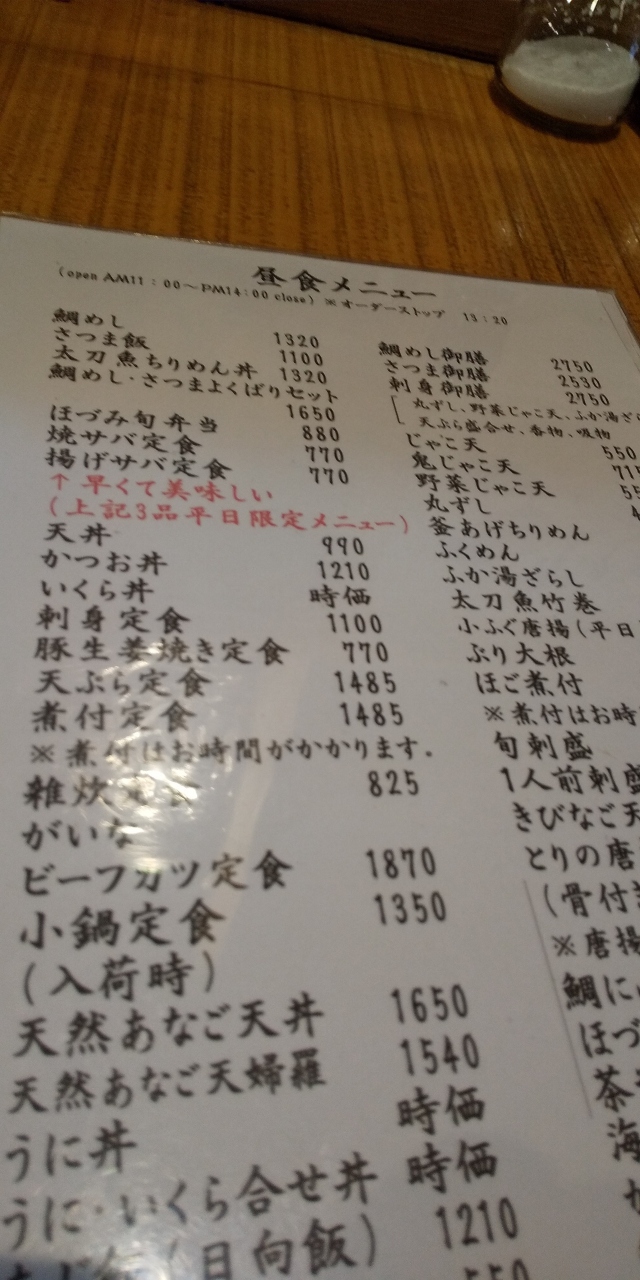 昼食メニュー
(open AM11:00〜PM14:00 close) ※オーダーストップ 13:20
鯛めし 1320
さつま飯 1100
太刀魚ちりめん丼 1320
鯛めし・さつまよくばりセット
1650
ほづみ旬弁当 880
焼サバ定食 770
揚げサバ定食 770
↑早くて美味しい
(上記3品平日限定メニュー)
天丼 990
かつお丼 1210
いくら丼 時価
刺身定食 1100
豚生姜焼き定食 770
天ぷら定食 1485
煮付定食 1485
※煮付はお時間がかかります.
雑炊定食 825
がいな
ビーフカツ定食 1870
小鍋定食 1350
(入荷時)
天然あなご天丼 1650
天然あなご天婦羅 1540
うに丼 時価
うに・いくら合せ丼 時価
(日向飯) 1210
550
鯛めし御膳 2750
さつま御膳 2530
刺身御膳 2750
丸ずし、野菜じゃこ天、ふか湯ざら
天ぷら盛合せ、香物、吸物
じゃこ天 550
鬼じゃこ天
野菜じゃこ天
丸ずし
釜あげちりめん
ふくめん
ふか湯ざらし
太刀魚竹巻
小ふぐ唐揚(平日
ぶり大根
ほご煮付
※煮付はお時
旬刺盛
1人前刺盛
きびなご天
とりの唐
(骨付
※唐揚
鯛に
ほづ
茶
海